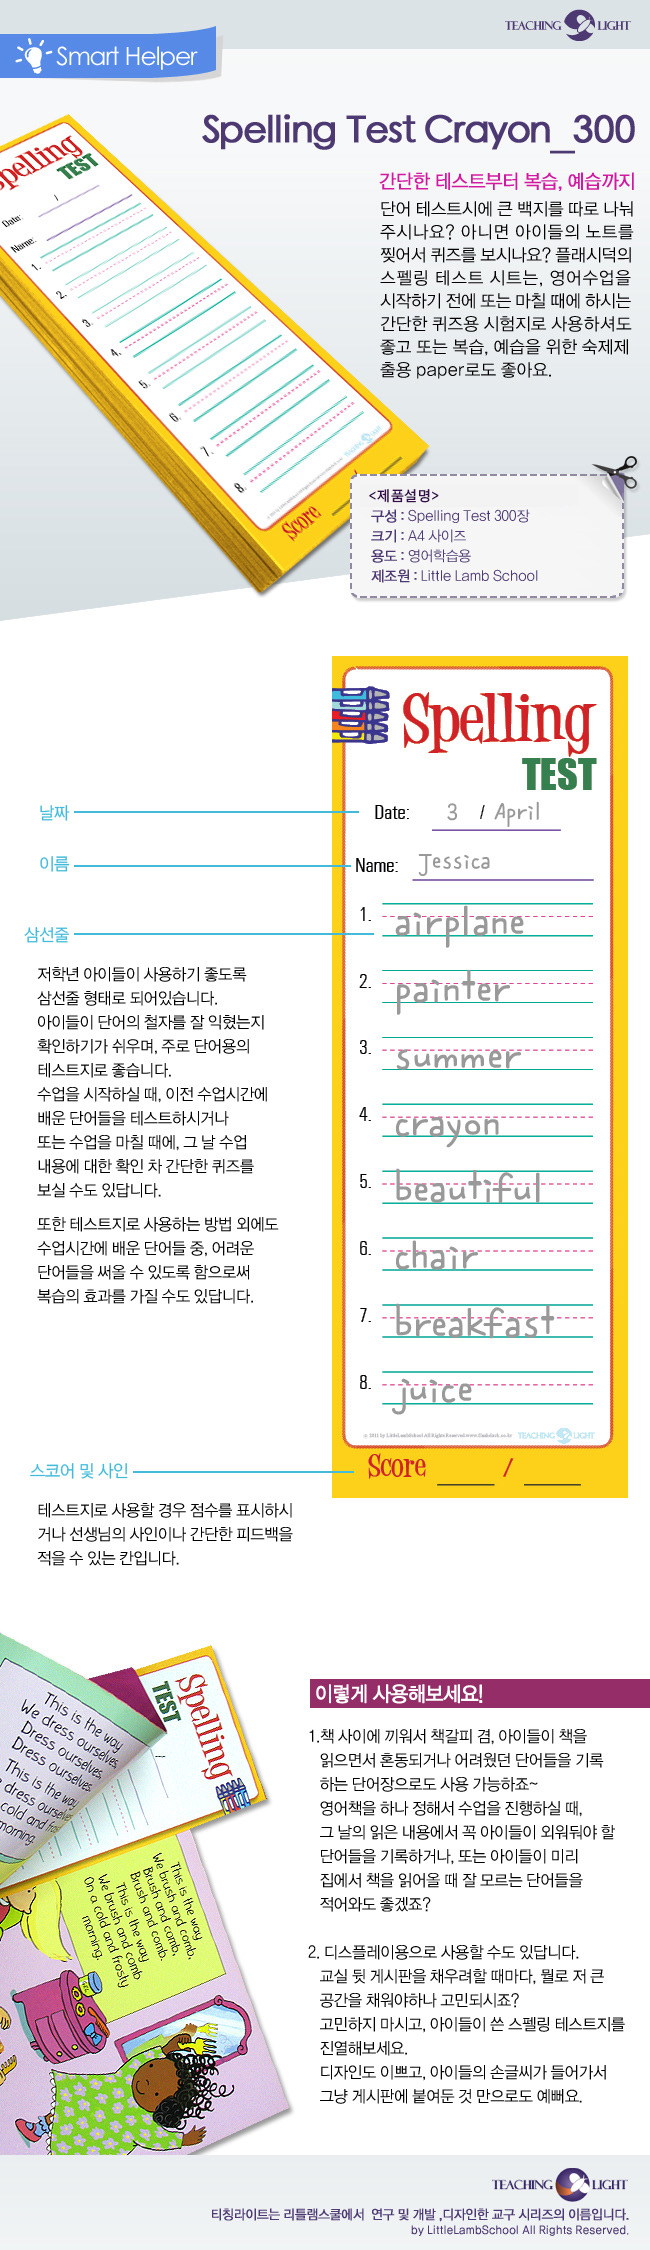 TEACHING LIGHT
Smart Helper
Spelling Test Crayon_300
간단한 테스트부터 복습, 예습까지
단어 테스트시에 큰 백지를 따로 나눠
주시나요? 아니면 아이들의 노트를
찢어서 퀴즈를 보시나요? 플래시덕의
스펠링 테스트 시트는, 영어수업을
시작하기 전에 또는 마칠 때에 하시는
간단한 퀴즈용 시험지로 사용하셔도
좋고 또는 복습, 예습을 위한 숙제제
출용 paper로도 좋아요.
Spelling
TEST
Date: /
Name:
1.
2.
3.
4.
5.
6.
7.
8.
Score
<제품설명>
구성 : Spelling Test 300장
크기 : A4 사이즈
용도 : 영어학습용
제조원 : Little Lamb School
Spelling
TEST
날짜
Date: 3 / April
이름
Name: Jessica
삼선줄
1. airplane
2. painter
3. summer
4. crayon
5. beautiful
6. chair
7. breakfast
8. juice
TEACHING LIGHT
Score /
저학년 아이들이 사용하기 좋도록
삼선줄 형태로 되어있습니다.
아이들이 단어의 철자를 잘 익혔는지
확인하기가 쉬우며, 주로 단어용의
테스트지로 좋습니다.
수업을 시작하실 때, 이전 수업시간에
배운 단어들을 테스트하시거나
또는 수업을 마칠 때에, 그 날 수업
내용에 대한 확인 차 간단한 퀴즈를
보실 수도 있답니다.
또한 테스트지로 사용하는 방법 외에도
수업시간에 배운 단어들 중, 어려운
단어들을 써올 수 있도록 함으로써
복습의 효과를 가질 수도 있답니다.
스코어 및 사인
테스트지로 사용할 경우 점수를 표시하시
거나 선생님의 사인이나 간단한 피드백을
적을 수 있는 칸입니다.
Spelling
TEST
This is the way
We dress ourselves,
Dress ourselves,
Dress ourselves.
This is the way
dress ourselves
cold and frosty
morning.
This is the way
We brush and comb,
Brush and comb,
Brush and comb.
This is the way
We brush and comb
On a cold and frosty
morning.
이렇게 사용해보세요!
1.책 사이에 끼워서 책갈피 겸, 아이들이 책을
읽으면서 혼동되거나 어려웠던 단어들을 기록
하는 단어장으로도 사용 가능하죠~
영어책을 하나 정해서 수업을 진행하실 때,
그 날의 읽은 내용에서 꼭 아이들이 외워둬야 할
단어들을 기록하거나, 또는 아이들이 미리
집에서 책을 읽어올 때 잘 모르는 단어들을
적어와도 좋겠죠?
2. 디스플레이용으로 사용할 수도 있답니다.
교실 뒷 게시판을 채우려할 때마다, 뭘로 저 큰
공간을 채워야하나 고민되시죠?
고민하지 마시고, 아이들이 쓴 스펠링 테스트지를
진열해보세요.
디자인도 이쁘고, 아이들의 손글씨가 들어가서
그냥 게시판에 붙여둔 것 만으로도 예뻐요.
TEACHING LIGHT
티칭라이트는 리틀램스쿨에서 연구 및 개발 ,디자인한 교구 시리즈의 이름입니다.
by LittleLambSchool All Rights Reserved.